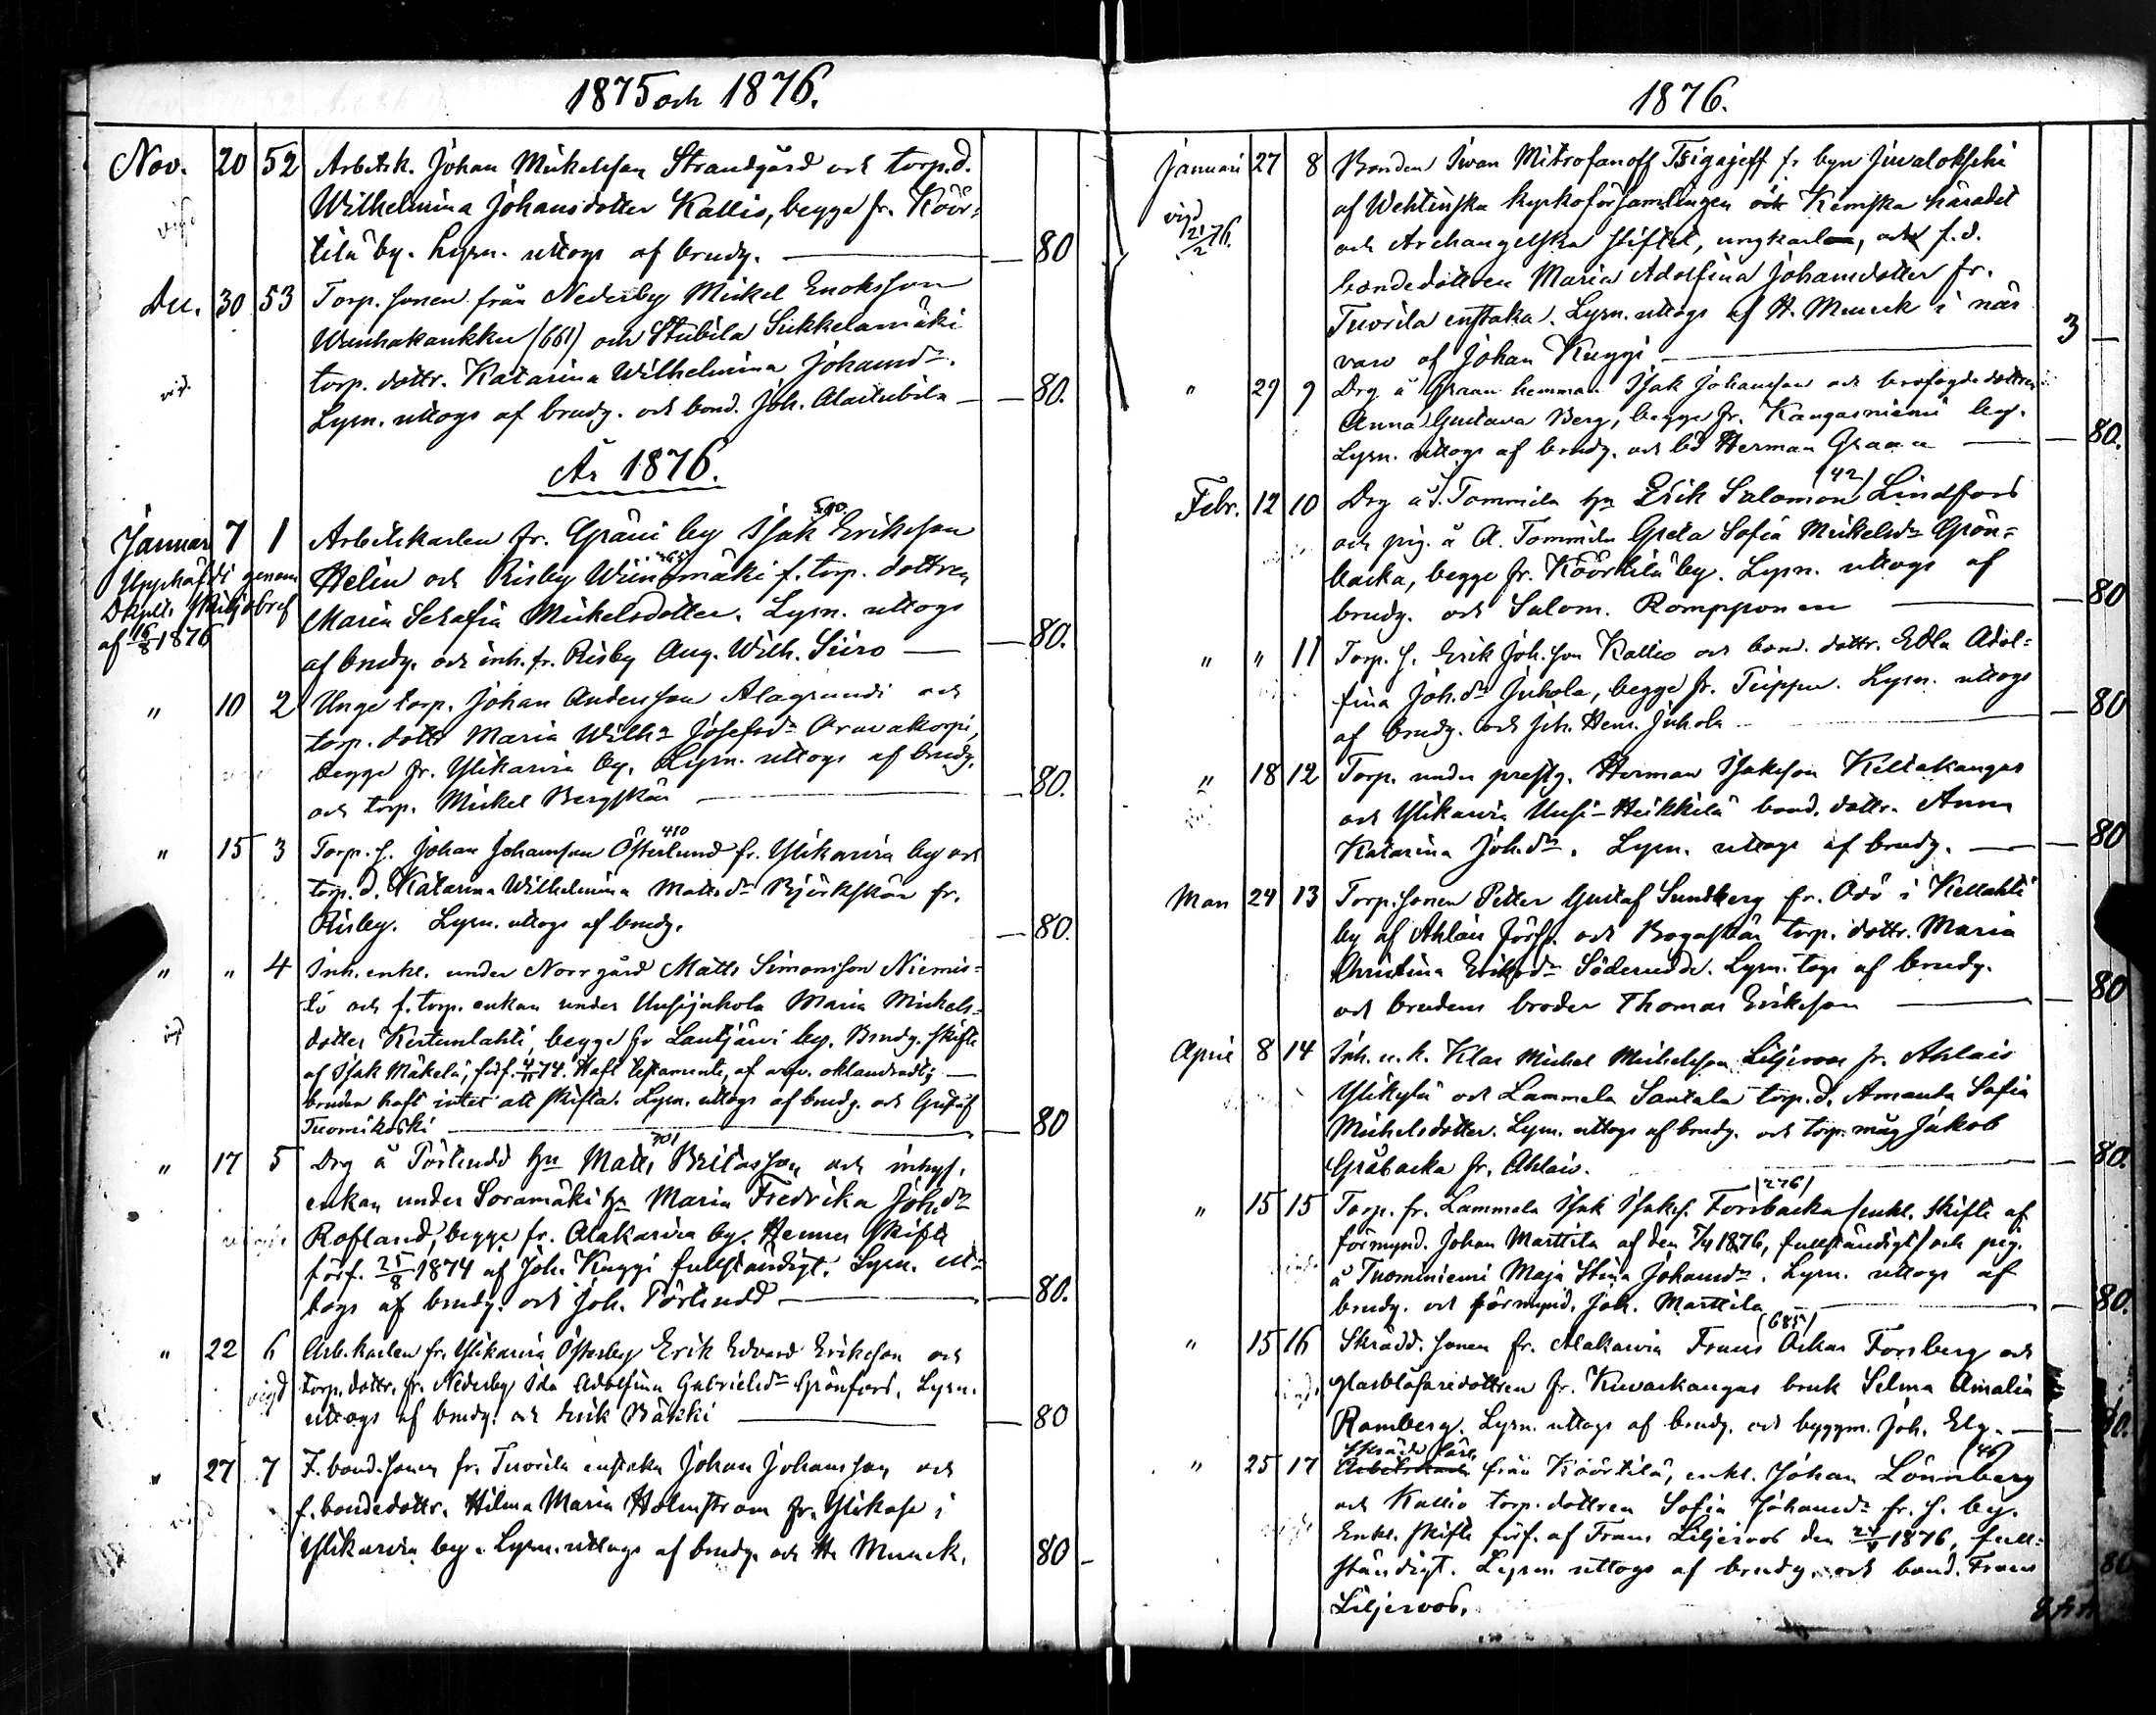 1875 och 1876.
Nov. 20 52 Arbetsk. Johan Mickelsson Strandgård och torp.d.
Wilhelmina Johansdotter Kallio, begge fr. Köör-
tilä by. Lysn. uttogs af brudg. — 80
Dec. 30 53 Torp. sonen från Nederby Mickel Enoksson
Wanhakankku (661) och Stubila Sikkelamäki
torp. dottr. Katarina Wilhelmina Johansdr.
Lysn. uttogs af brudg. och bond. Joh. Alastubila — 80.
År 1876.
Januari 7 1 Arbetskarlen fr. Gräni by Isak Eriksson
Helin och Risby f. torp. dottren
Maria Serafia Mickelsdotter. Lysn. uttogs
af brudg. och inh. fr. Risby Aug. Wilh. Siiro — 80.
Upphäfdt genom
skiljobref
af 16/8 1876
" 10 2 Unge torp. Johan Andersson Alagrundi och
torp. dottr Maria Wilhª Josefsdr Oravakorpi,
begge fr. Ylikarvia by. Lysn. uttogs af brudg.
och torp. Mickel Bergskär — 80.
" 15 3 Torp. s. Johan Johansson Österlund 410 fr. Ylikarvia by och
torp. d. Katarina Wilhelmina Mattsdr Björkskär fr.
Risby. Lysn. uttogs af brudg. — 80.
" " 4 Inh. enkl. under Norrgård Matts Simonsson Niemis-
tö och f. torp. enkan under Uusijuhola Maria Mickels-
dotter Kertunlahti, begge fr Lautjärvi by. Brudg. skifte
af Isak Mäkelä, förf. 4/11 74. Haft testamente, af arfv. oklandradt; —
bruden haft intet att skifta. Lysn. uttogs af brudg. och Gustaf
Tuomikoski — 80
" 17 5 Drg å Törnudd hn Matts Britasson 701 och inhys.
enkan under Soramäki hn Maria Fredrika Joh.dr
Rosland, begge fr. Alakarvia by. Hennes skifte
förf. 25/8 1874 af Joh. Kuggi fullständigt. Lysn. ut-
togs af brudg. och Joh. Törnudd — 80.
" 22 6 Arb.karlen fr. Ylikarvia Österby Erik Edvard Eriksson och
vigd torp. dottr. fr. Nederby Ida Adolfina Gabrielsdr Grönfors. Lysn.
uttogs af brudg. och Erik Bäkki — 80
" 27 7 F. bond. sonen fr. Tuorila enstaka Johan Johansson och
vigd f. bondedottr. Hilma Maria Holmström fr. i
Ylikarvia by. Lysn. uttogs af brudg. och H. Munck. 80 -
1876.
Januari 27 8 Bonden Iwan Mitrofanoff Tsigajeff fr byn Jiwalokschi
af Wehtinska kyrkoförsamlingen och Kemska häradet
vigd 21/2 76. och Archangelska stiftet, ungkarl, och f.d.
bondedottren Maria Adolfina Johansdotter fr.
Tuorila enstaka. Lysn. uttogs af H. Munck i när
varo af Johan Kuggi — 3 —
" 29 9 Drg å Graan hemman Isak Johansson och brofogdedottren
Anna Gustava Berg, begge fr. Kangasniemi by.
Lysn. uttogs af brudg. och bd Herman Graan — 80.
Febr. 12 10 Drg å S. Tommila hn Erik Salomon (42) Lindfors
och pig. å A. Tommila Greta Sofia Mickelsdr Grön-
backa, begge fr. Köörtilä by. Lysn. uttogs af
brudg. och Salom. Rompponen — 80
" " 11 Torp. s. Erik Joh.son Kallio och bond. dottr. Edla Adol-
fina Joh.dr Juhola, begge fr. Tuippu. Lysn. uttogs
af brudg. och Joh. Henr. Juhola — 80
" 18 12 Torp. under prestg. Herman Isaksson Keltakangas
och Ylikarvia Uusi-Heikkilä bond. dottr. Anna
Katarina Joh.dr. Lysn. uttogs af brudg. — 80
Mars 24 13 Torp.sonen Petter Gustaf Sundberg fr. Odö i Kellahti
by af Ahlais förs. och Bogaskär torp. dottr. Maria
Christina Eriksdr Söderudd. Lysn. togs af brudg.
och brudens broder Thomas Eriksson — 80
April 8 14 Inh. u. k. Klas Mickel Mickelsson Liljeroos fr. Ahlais
Ylikylä och Lammela Santala torp.d. Amanda Sofia
Mickelsdotter. Lysn. uttogs af brudg. och torp. måg Jakob
Gråbacka fr. Ahlais. — 80.
" 15 15 Torp. fr. Lammela Isak Isaks. Forsbacka (276) (enkl. skifte af
förmynd. Johan Marttila af den 7/4 1876, fullständigt) och pig.
å Tuominiemi Maja Stina Johansdr. Lysn. uttogs af
brudg. och förmynd. Joh. Marttila — 80.
" 15 16 Skrädd. sonen fr. Alakarvia Frans Oskar (685) Forsberg och
glasblåsaredottren fr. Kuvaskangas bruk Selma Amalia
Ramberg. Lysn. uttogs af brudg. och byggm. Joh. Elg. — 80.
" 25 17 från Köörtilä, enkl. Johan Lönnberg (46)
och Kallio torp. dottren Sofia Johansdr fr. s. by.
Enkl. skifte förf. af Frans Liljeroos den 24/4 1876, full-
ständigt. Lysn uttogs af brudg. och bond. Frans 80
Liljeroos.